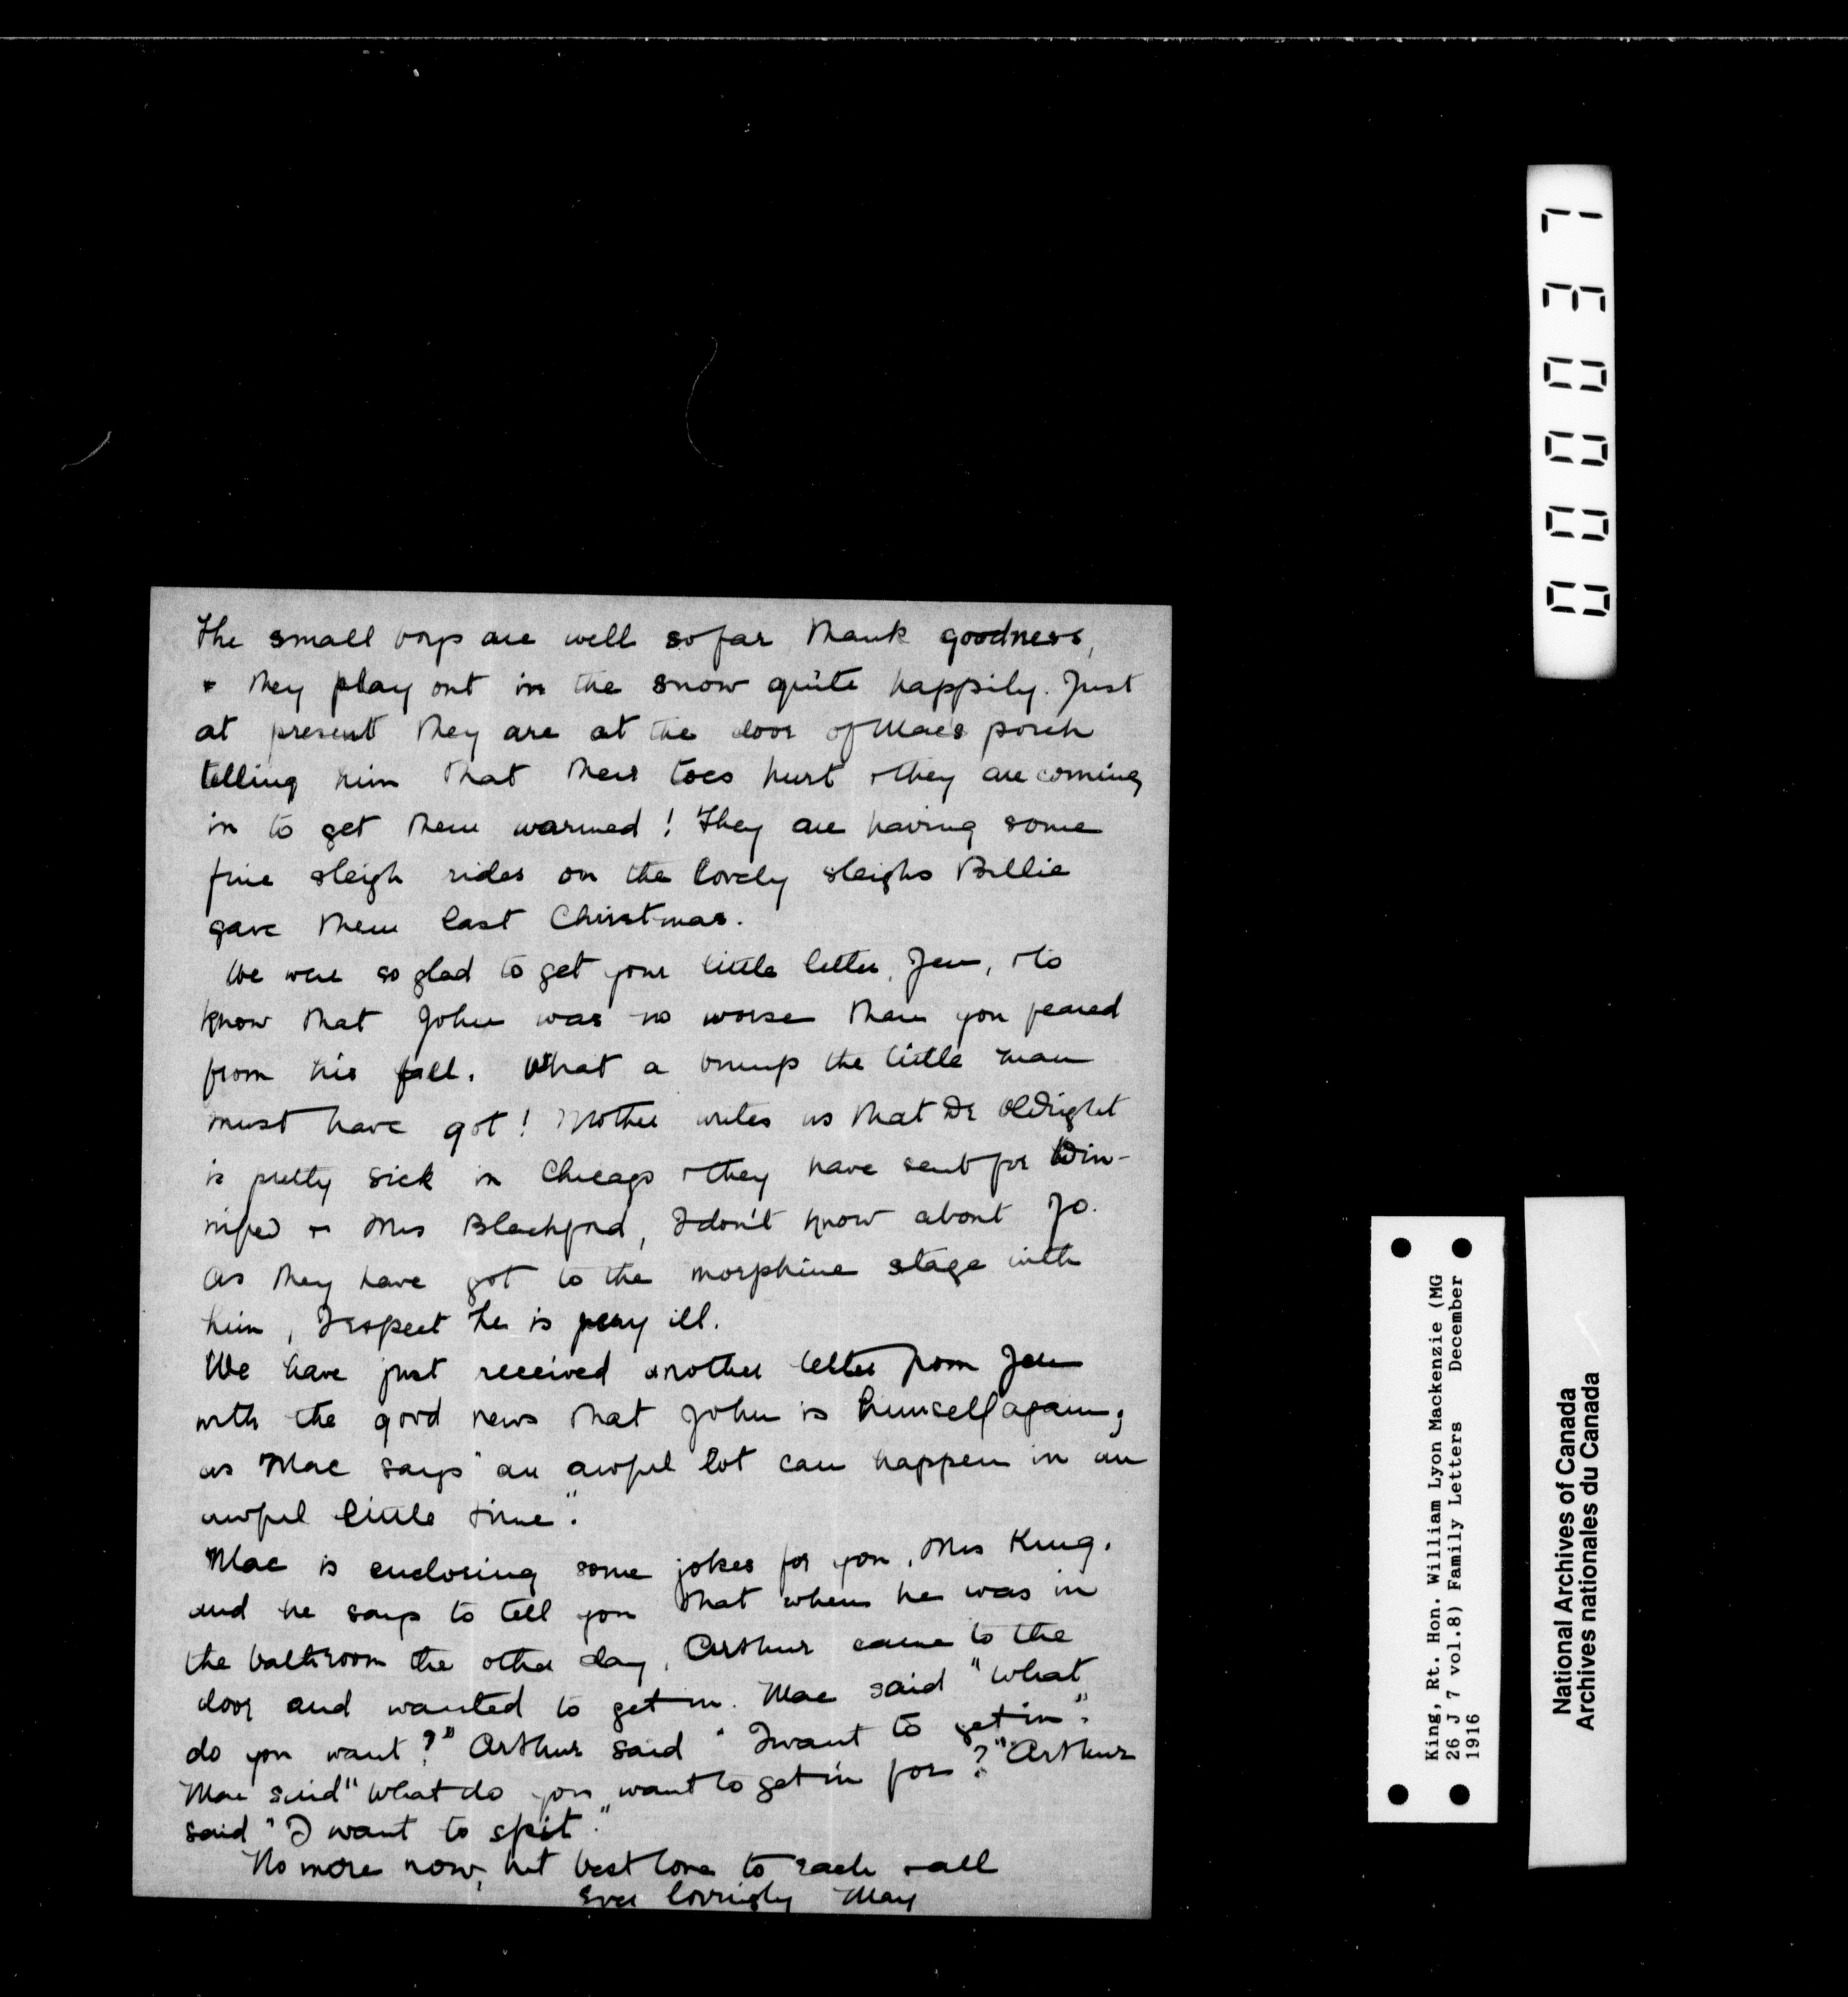 The small boys are well so far thank goodness,
& they play out in the snow quite happily. Just
at present they are at the door of Mac's porch
telling him that their toes hurt & they are coming
in to get them warmed! They are having some
fine sleigh rides on the lovely sleighs Billie
gave them last Christmas.
We were so glad to get your little letter, Jen, & to
know that John was no worse than you feared
from his fall. What a bump the little man
must have got! Mother writes us that Dr Oldright
is pretty sick in Chicago & they have sent for Win-
nifred & Mrs Blachford, I don't know about Jo.
As they have got to the morphine stage with
him, I expect he is very ill.
We have just received another letter from Jen
with the good news that John is himself again;
as Mac says "an awful lot can happen in an
awful little time".
Mac is enclosing some jokes for you, Mrs King.
and he says to tell you that when he was in
the bathroom the other day, Arthur came to the
door and wanted to get in. Mac said "What
do you want?" Arthur said "I want to get in".
Mac said "What do you want to get in for?" Arthur
said "I want to spit."
No more now, but best love to each & all
Ever lovingly May
0000037
King, Rt. Hon. William Lyon Mackenzie (MG
26 J 7 vol.8) Family Letters December
1916
National Archives of Canada
Archives nationales du Canada